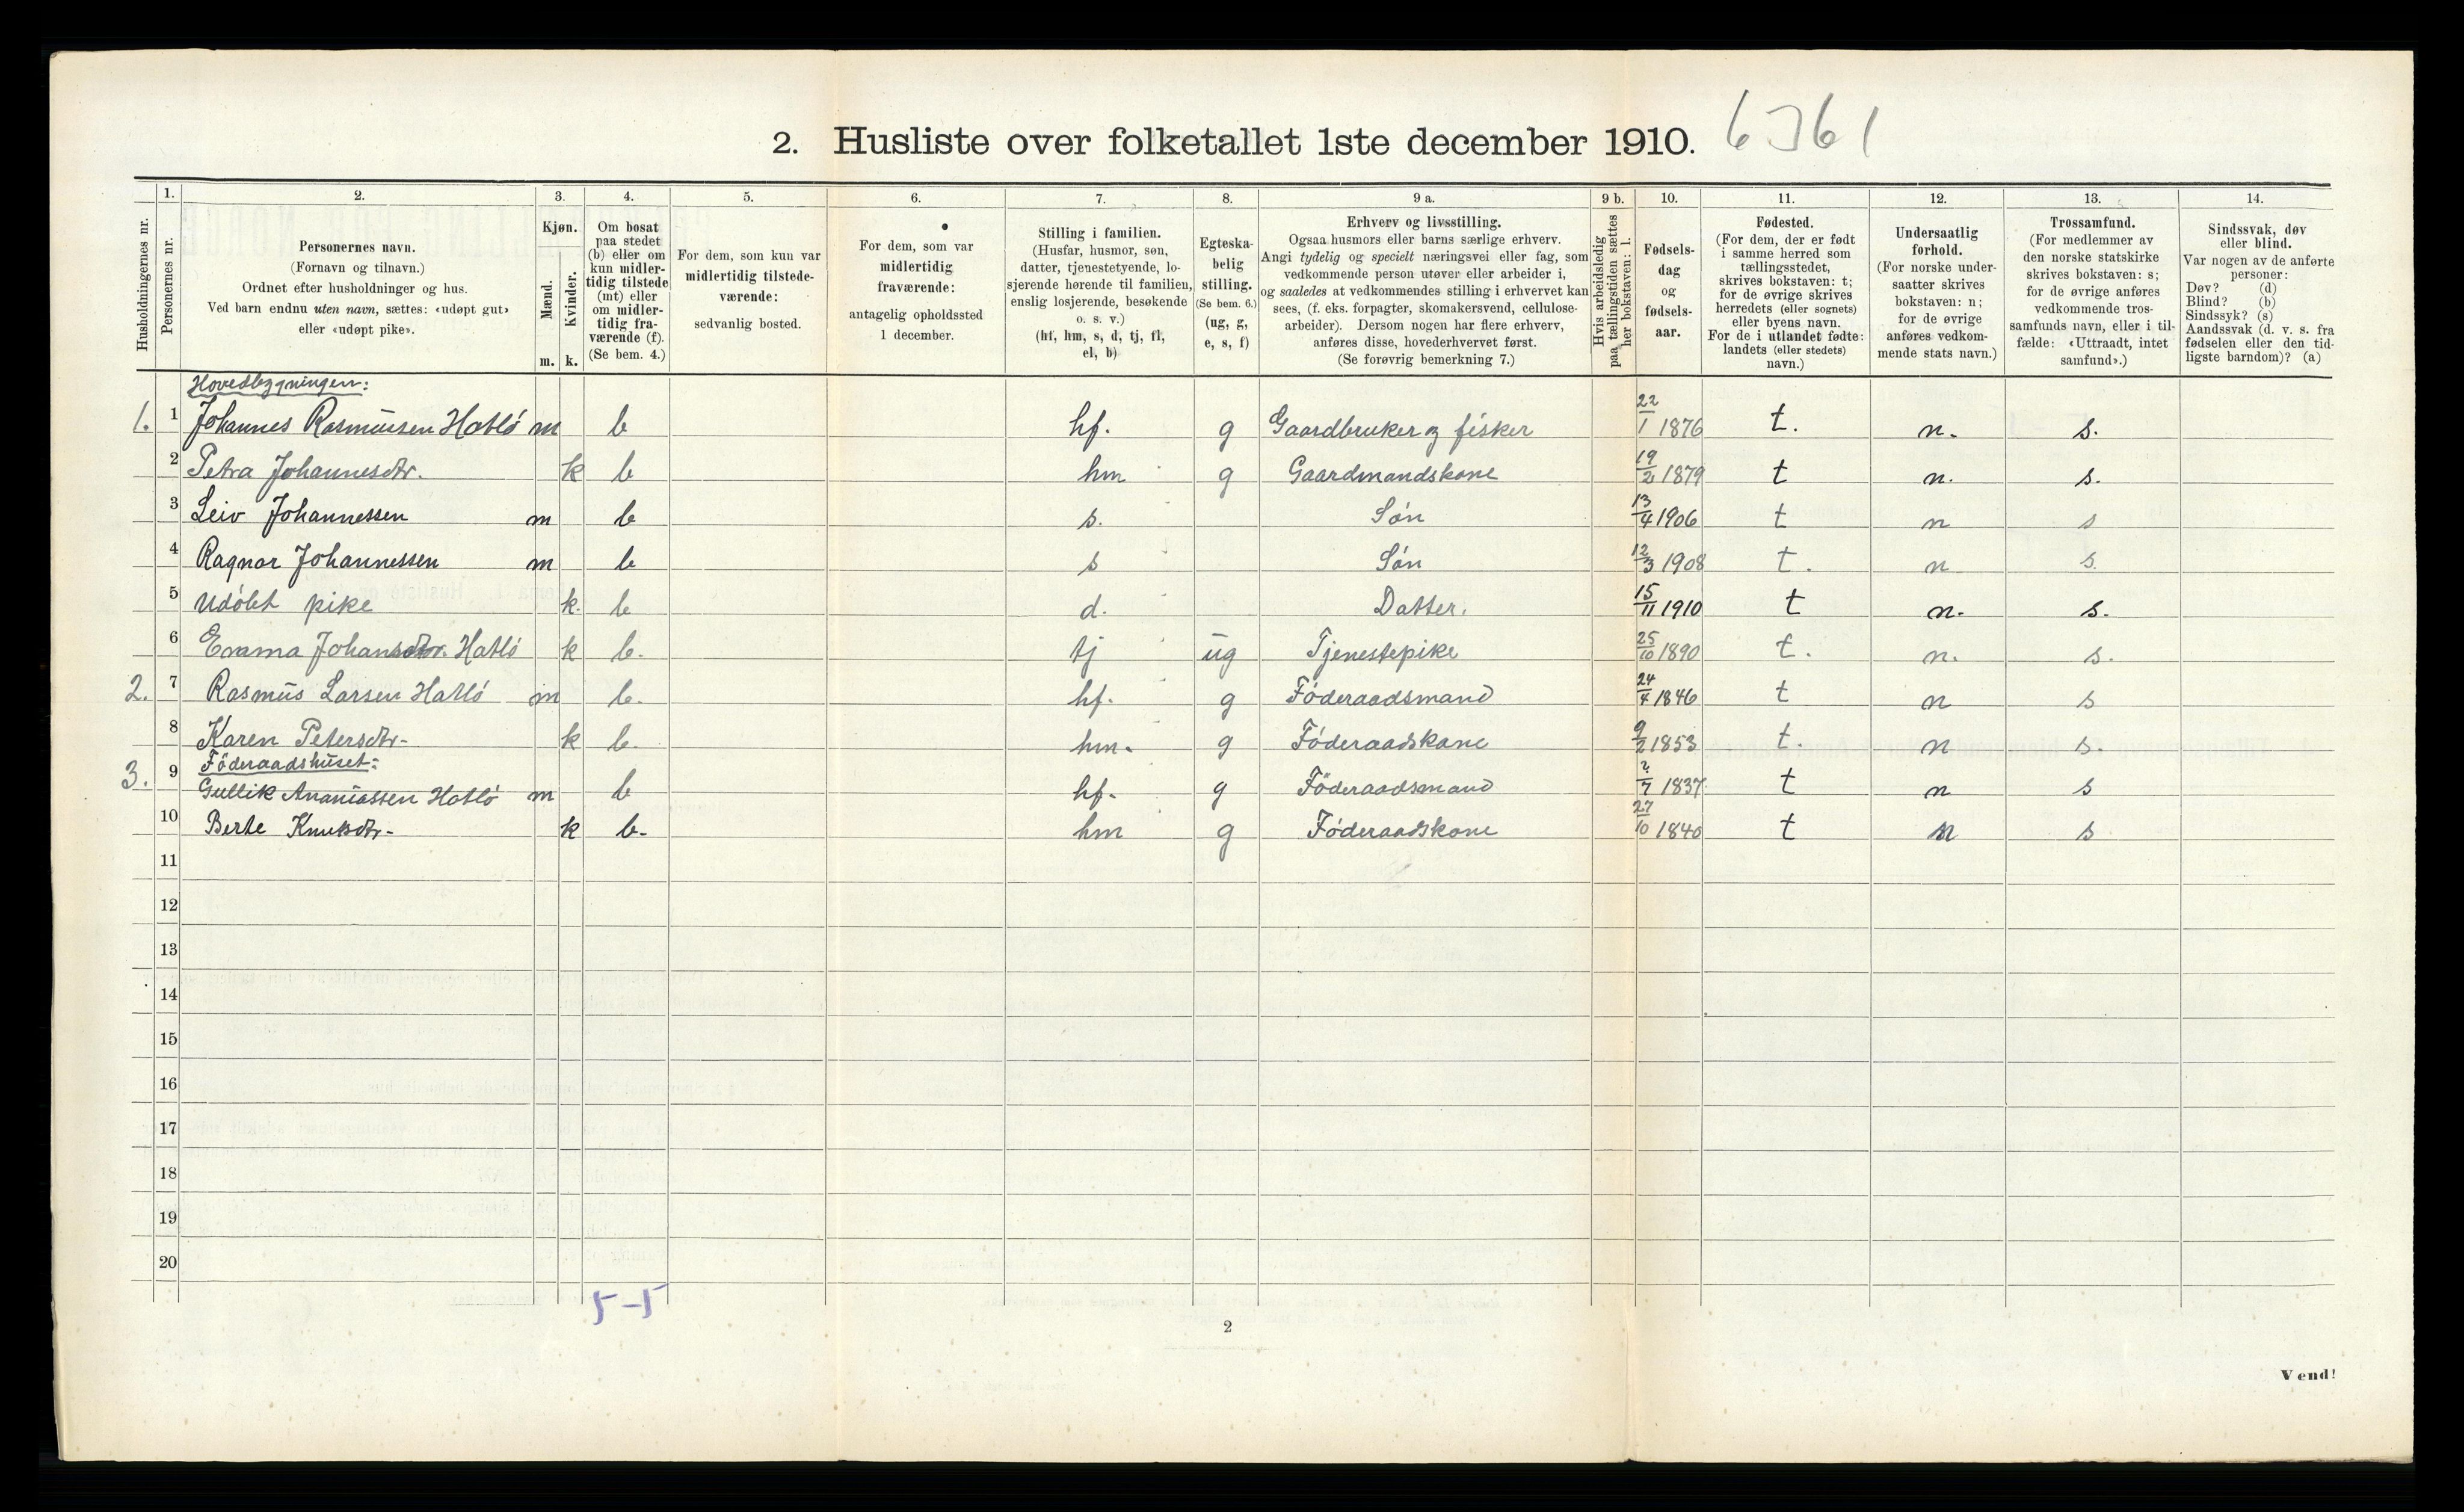 2. Husliste over folketallet 1ste december 1910. 6361
Husholdningernes nr.
1. Personernes nr.
2. Personernes navn.
(Fornavn og tilnavn.)
Ordnet efter husholdninger og hus.
Ved barn endnu uten navn, sættes: «udøpt gut»
eller «udøpt pike».
3. Kjøn.
Mænd. Kvinder.
m. k.
4. Om bosat
paa stedet
(b) eller om
kun midler-
tidig tilstede
(mt) eller
om midler-
tidig fra-
værende (f).
(Se bem. 4.)
5. For dem, som kun var
midlertidig tilstede-
værende:
sedvanlig bosted.
6. For dem, som var
midlertidig
fraværende:
antagelig opholdssted
1 december.
7. Stilling i familien.
(Husfar, husmor, søn,
datter, tjenestetyende, lo-
sjerende hørende til familien,
enslig losjerende, besøkende
o. s. v.)
(hf, hm, s, d, tj, fl,
el, b)
8. Egteska-
belig
stilling.
(Se bem. 6.)
(ug, g,
e, s, f)
9 a. Erhverv og livsstilling.
Ogsaa husmors eller barns særlige erhverv.
Angi tydelig og specielt næringsvei eller fag, som
vedkommende person utøver eller arbeider i,
og saaledes at vedkommendes stilling i erhvervet kan
sees, (f. eks. forpagter, skomakersvend, cellulose-
arbeider). Dersom nogen har flere erhverv,
anføres disse, hovederhvervet først.
(Se forøvrig bemerkning 7.)
9 b. Hvis arbeidsledig
paa tællingstiden sættes
her bokstaven: l.
10. Fødsels-
dag
og
fødsels-
aar.
11. Fødested.
(For dem, der er født
i samme herred som
tællingsstedet,
skrives bokstaven: t;
for de øvrige skrives
herredets (eller sognets)
eller byens navn.
For de i utlandet fødte:
landets (eller stedets)
navn.)
12. Undersaatlig
forhold.
(For norske under-
saatter skrives
bokstaven: n;
for de øvrige
anføres vedkom-
mende stats navn.)
13. Trossamfund.
(For medlemmer av
den norske statskirke
skrives bokstaven: s;
for de øvrige anføres
vedkommende tros-
samfunds navn, eller i til-
fælde: «Uttraadt, intet
samfund».)
14. Sindssvak, døv
eller blind.
Var nogen av de anførte
personer:
Døv? (d)
Blind? (b)
Sindssyk? (s)
Aandssvak (d. v. s. fra
fødselen eller den tid-
ligste barndom)? (a)
Hovedbygningen:
1. 1 Johannes Rasmussen Hatló m b hf. g Gaardbruker og fisker 22/1 1876 t. n. s.
2 Petra Johannesdtr. k b hm g Gaardmandskone 19/2 1879 t n. s.
3 Leiv Johannessen m b s. Són 13/4 1906 t n s
4 Ragnar Johannessen m b s Són 12/3 1908 t. n s.
5 Udóbt pike k. b d. Datter. 15/11 1910 t n. s.
6 Emma Johansdtr. Hatló k b. tj ug Tjenestepike 25/10 1890 t. n. s.
2. 7 Rasmus Larsen Hatló m b. hf. g Fóderaadsmand 24/4 1846 t n s
8 Karen Petersdtr- k b. hm. g Fóderaadskone 9/2 1853 t. n s.
Föderaadshuset:
3. 9 Gullik Ananiassen Hatló m b hf. g Föderaadsmand ?/7 1837 t n s
10 Berte Knutsdtr- k b- hm g Fóderaadskone 27/10 1840 t n s
11
12
13
14
15
16
17
18
19
20
5-5
2
Vend!